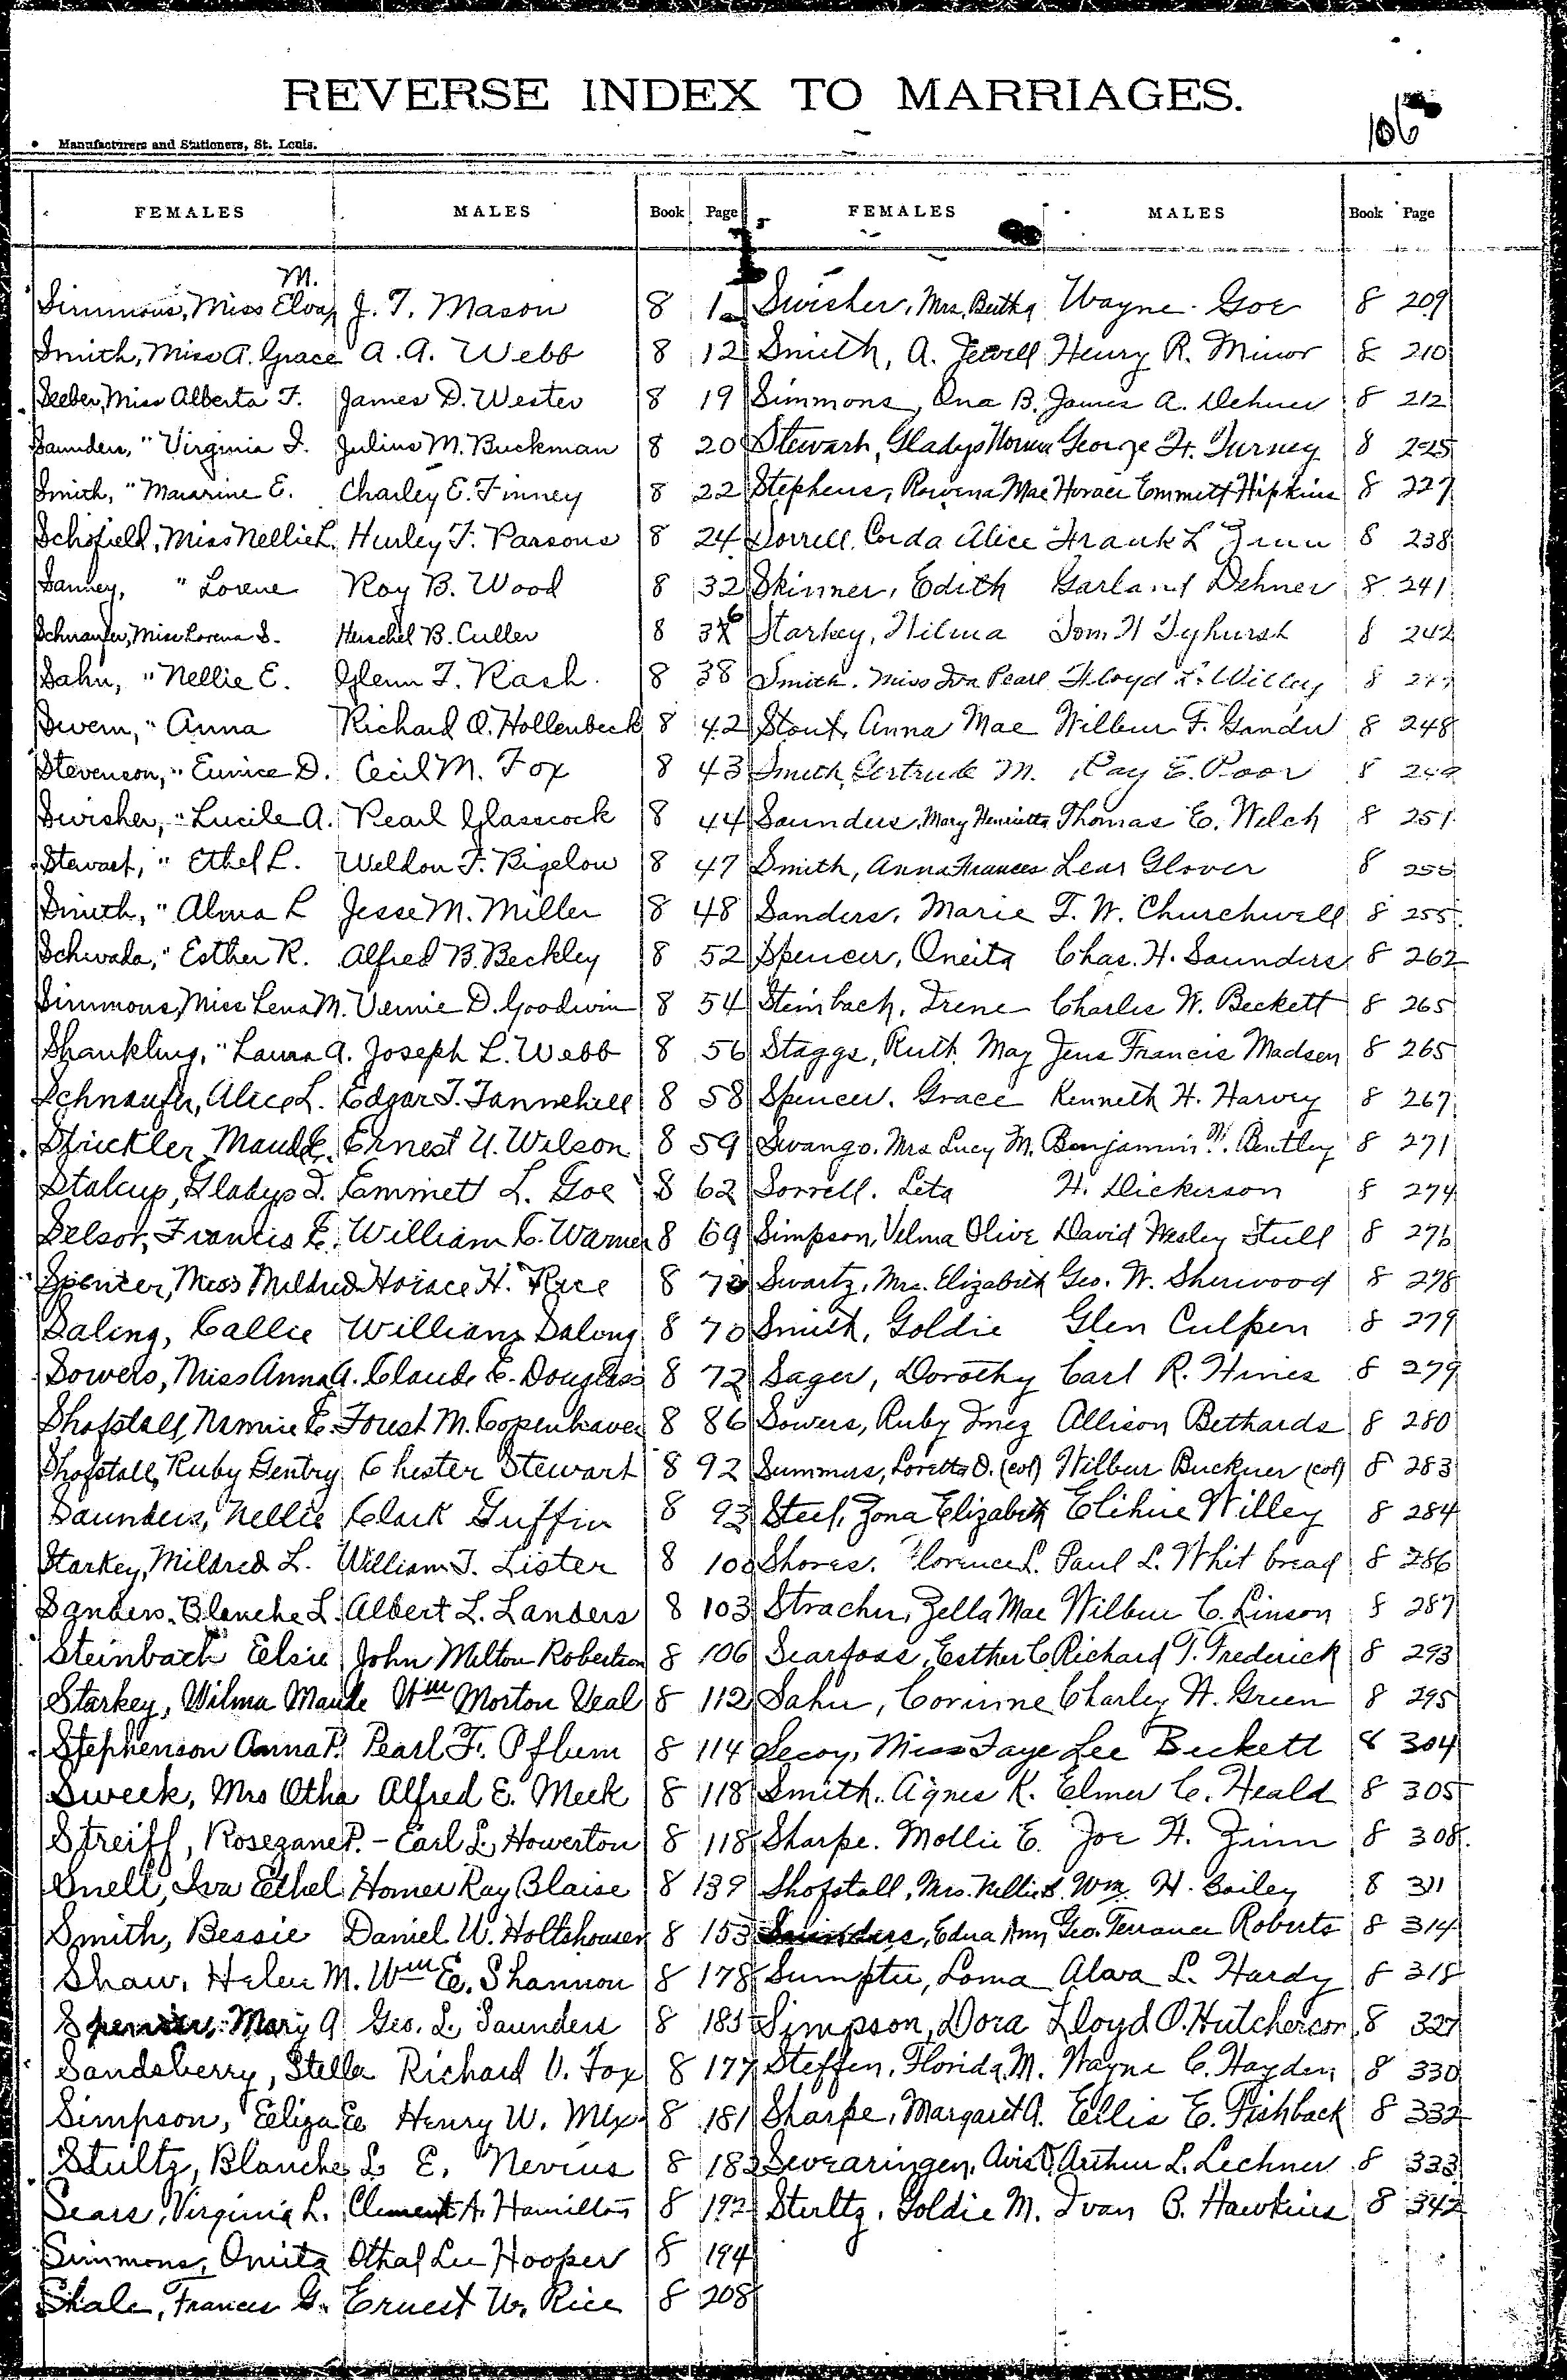 REVERSE INDEX TO MARRIAGES.
106
Manufacturers and Stationers, St. Louis.
FEMALES MALES Book Page
Simmons, Miss Elva M. J. T. Mason 8 1
Smith, Miss A. Grace A. A. Webb 8 12
Seeber, Miss Alberta F. James D. Wester 8 19
Saunders, " Virginia I. Julius M. Buckman 8 20
Smith, " Macarine E. Charley E. Finney 8 22
Schofield, Miss Nellie L. Hurley F. Parsons 8 24
Sanney, " Lorene Roy B. Wood 8 32
Schnaufer, Miss Lorena S. Herschel B. Culler 8 36
Sahn, " Nellie E. Glenn T. Rash. 8 38
Swern, " Anna Richard O. Hollenbeck 8 42
Stevenson, " Eunice D. Cecil M. Fox 8 43
Swisher, " Lucile A. Pearl Glasscock 8 44
Stewart, " Ethel L. Weldon F. Bigelow 8 47
Smith, " Alma L Jesse M. Miller 8 48
Schwada, " Esther R. Alfred B. Beckley 8 52
Simmons, Miss Lena M. Vernie D. Goodwin 8 54
Shankling, " Laura A. Joseph L. Webb 8 56
Schnaufer, Alice L. Edgar T. Tannehill 8 58
Strickler, Maud E. Ernest U. Wilson 8 59
Stalcup, Gladys I. Emmett L. Goe 8 62
Selsor, Francis E. William C. Warner 8 69
Spencer, Miss Mildred Horace H. Rice 8 70
Saling, Callie William Saling 8 70
Sowers, Miss Anna A. Claude E. Douglass 8 72
Shofstall, Nannie E. Forest M. Copenhaver 8 86
Shofstall, Ruby Gentry Chester Stewart 8 92
Saunders, Nellie Clark Guffin 8 93
Starkey, Mildred L. William T. Lister 8 100
Sanders, Blanche L. Albert L. Landers 8 103
Steinbach Elsie John Milton Robertson 8 106
Starkey, Wilma Maude Wm Morton Veal 8 112
Stephenson Anna P. Pearl F. Pflum 8 114
Sweek, Mrs Otha Alfred E. Meek 8 118
Streiff, Rosezane P. - Earl L. Howerton 8 118
Snell, Iva Ethel Homer Ray Blaise 8 139
Smith, Bessie Daniel W. Holtshouser 8 153
Shaw, Helen M. Wm E. Shannon 8 178
Spencer, Mary A Geo. L. Saunders 8 185
Sandsberry, Stella Richard V. Fox 8 177
Simpson, Eliza E Henry W. Mix 8 181
Stultz, Blanche L E. Nevius 8 182
Sears, Virginia L. Clement A. Hamilton 8 192
Simmons, Omita Othal Lee Hooper 8 194
Shale, Frances G. Ernest W. Rice 8 208
FEMALES MALES Book Page
Swisher, Mrs. Bertha Wayne Goe 8 209
Smith, A. Jewell Henry R. Minor 8 210
Simmons, Ona B. James A. Dehner 8 212
Stewart, Gladys Norma George H. Turney 8 225
Stephens, Rowena Mae Horace Emmett Hipkins 8 227
Sorrell, Corda Alice Frank L Zinn 8 238
Skinner, Edith Garland Dehner 8 241
Starkey, Wilma Tom H Tyhurst 8 242
Smith, Miss Iva Pearl Floyd L. Willey 8
Stout, Anna Mae Wilbur F. Gander 8 248
Smith, Gertrude M. Ray E. Poor 8 249
Saunders, Mary Henrietta Thomas E. Welch 8 251
Smith, Anna Frances Lear Glover 8 255
Sanders, Marie T. W. Churchwell 8 255
Spencer, Oneita Chas. H. Saunders 8 262
Steinbach, Irene Charles W. Beckett 8 265
Staggs, Ruth May Jens Francis Madsen 8 265
Spencer, Grace Kenneth H. Harvey 8 267
Swango, Mrs Lucy M. Benjamin M. Bentley 8 271
Sorrell, Leta H. Dickerson 8 274
Simpson, Velma Olive David Wesley Stull 8 276
Swartz, Mrs. Elizabeth Geo. W. Sherwood 8 278
Smith, Goldie Glen Culpen 8 279
Sager, Dorothy Carl R. Hines 8 279
Sowers, Ruby Inez Allison Bethards 8 280
Summers, Loretta O. (col) Wilbur Buckner (col) 8 283
Steel, Zona Elizabeth Elihue Willey 8 284
Shores, Florence L. Paul L. Whit bread 8 286
Stracher, Zella Mae Wilbur C. Linson 8 287
Searfoss, Esther C. Richard T. Frederick 8 293
Sahn, Corinne Charley H. Green 8 295
Secoy, Miss Faye Lee Beckett 8 304
Smith, Agnes K. Elmer C. Heald 8 305
Sharpe, Mollie E. Joe H. Zinn 8 308
Shofstall, Mrs. Nellie S. Wm. H. Bailey 8 311
Saunders, Edna Ann Geo. Terrance Roberts 8 314
Sumpter, Loma Alava L. Hardy 8 318
Simpson, Dora Lloyd O. Hutcherson 8 327
Steffen, Florida M. Wayne C. Hayden 8 330
Sharpe, Margaret A. Ellis E. Fishback 8 332
Swearingen, Avis D. Arthur L. Lechner 8 333
Sterltz, Goldie M. Ivan B. Hawkins 8 342